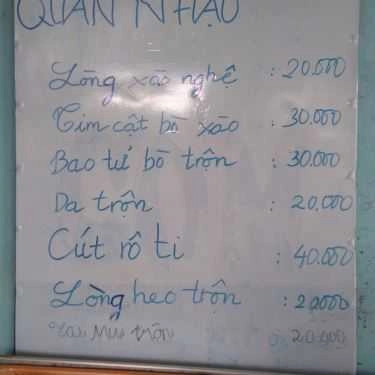 QUÁN NHẬU
Lòng xào nghệ : 20.000
Tim cật bò xào : 30.000
Bao tử bò trộn : 30.000
Da trộn : 20.000
Cút rô ti : 40.000
Lòng heo trộn : 20.000
trộn 20.000